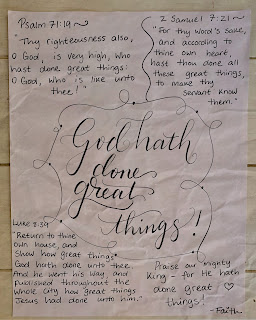 Psalm 71:19~
"Thy righteousness also,
O God, is very high, who
hast done great things:
O God, who is like unto
thee!"
2 Samuel 7:21~
"For thy word's sake,
and according to
thine own heart,
hast thou done all
these great things,
to make thy
servant know
them."
God hath
done
great
things!
Luke 8:39
"Return to thine
own house, and
Show how great things
God hath done unto thee.
And he went his way, and
published throughout the
whole city how great things
Jesus had done unto him."
Praise our mighty
King - for He hath
done great
things!
-Faith